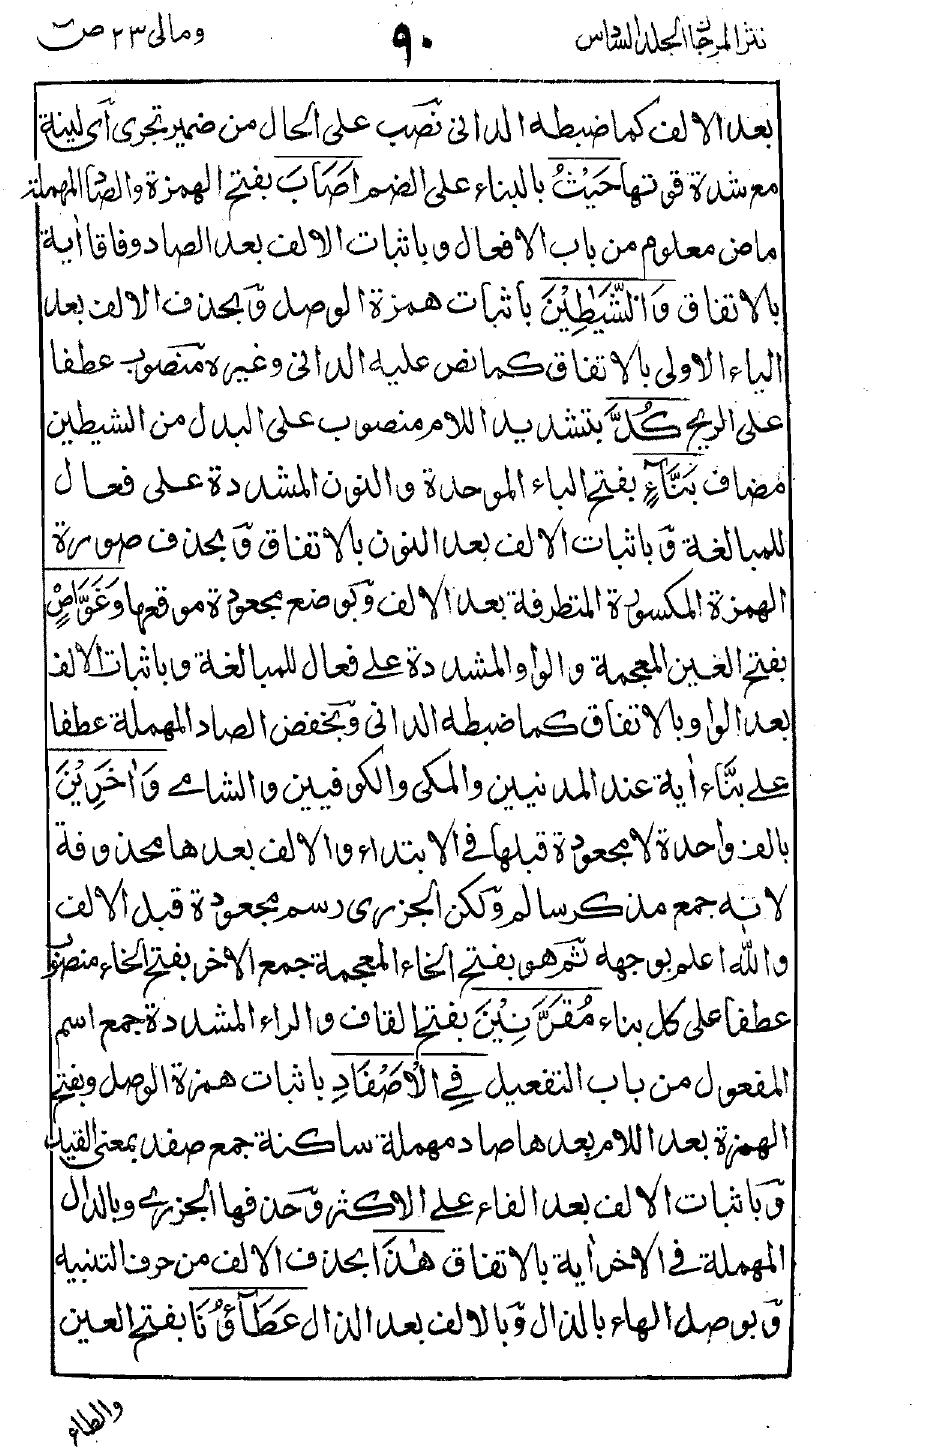 نثر المرجان الجلد السادس
٩٠
ومالى ٢٣ صۤ
بعد الالف كما ضبطه الدانى نصب على الحال من ضمير تجرى أى لينة
مع شدة قوتها حَيْثُ بالبناء على الضم اَصَابَ بفتح الهمزة والصاد المهملة
ماض معلوم من باب الافعال وباثبات الالف بعد الصاد وفاقا أية
بالاتفاق وَالشَّيٰطِيْنَ باثبات همزة الوصل وبحذف الالف بعد
الياء الاولى بالاتفاق كما نص عليه الدانى وغيره منصوب عطفا
على الريح كُلَّ بتشديد اللام منصوب على البدل من الشيطين
مضاف بَنَّآءٍ بفتح الباء الموحدة والنون المشددة على فعال
للمبالغة وباثبات الالف بعد النون بالاتفاق وبحذف صورة
الهمزة المكسورة المتطرفة بعد الالف وبوضع مجعودة موقعها وَغَوَّاصٍ
بفتح الغين المعجمة والواو المشددة على فعال للمبالغة وباثبات الالف
بعد الواو بالاتفاق كما ضبطه الدانى وبخفض الصاد المهملة عطفا
على بنَّاء أية عند المدنيين والمكى والكوفيين والشامى وَاٰخَرِيْنَ
بالف واحدة لا مجعودة قبلها فى الابتداء والالف بعدها محذوفة
لانه جمع مذكر سالم ولكن الجزرى رسم مجعودة قبل الالف
والله اعلم بوجهه ثم هو بفتح الخاء المعجمة جمع الاخر بفتح الخاء منصوب
عطفا على كل بناء مُقَرَّنِيْنَ بفتح القاف والراء المشددة جمع اسم
المفعول من باب التفعيل فِى الْاَصْفَادِ باثبات همزة الوصل وبفتح
الهمزة بعد اللام بعدها صاد مهملة ساكنة جمع صفد بمعنى القيد
وباثبات الالف بعد الفاء على الاكثر وحذفها الجزرى وبالدال
المهملة فى الاخر أية بالاتفاق هٰذَا بحذف الالف من حرف التنبيه
وبوصل الهاء بالذال وبالالف بعد الذال عَطَآؤُنَا بفتح العين
والطاء